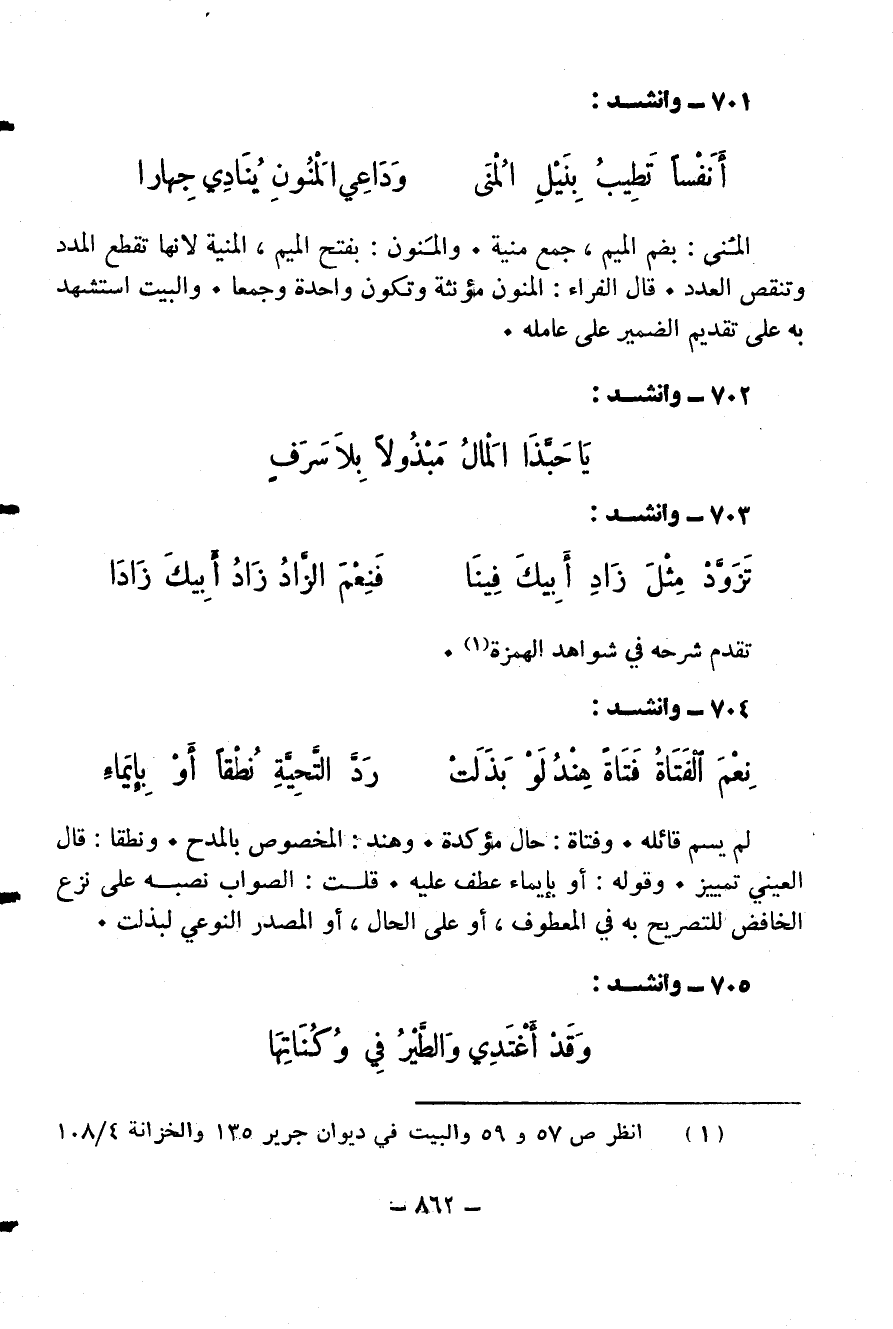 ٧٠١ ــ وانشــد :
أَنَفْساً تَطِيبُ بِنَيْلِ الْمُنَى وَدَاعِي الْمَنُونِ يُنَادِي جِهارا
المُنى : بضم الميم ، جمع منية ٠ والمَنون : بفتح الميم ، المنية لانها تقطع المدد
وتنقص العدد ٠ قال الفراء : المنون مؤنثة وتكون واحدة وجمعا ٠ والبيت استشهد
به على تقديم الضمير على عامله ٠
٧٠٢ ــ وانشــد :
يَا حَبَّذَا الْمَالُ مَبْذُولاً بِلاَ سَرَفٍ
٧٠٣ ــ وانشــد :
تَزَوَّدْ مِثْلَ زَادِ أَبِيكَ فِينَا فَنِعْمَ الزَّادُ زَادُ أَبِيكَ زَادَا
تقدم شرحه في شواهد الهمزة(١) ٠
٧٠٤ ــ وانشــد :
نِعْمَ الْفَتَاةُ فَتَاةً هِنْدُ لَوْ بَذَلَتْ رَدَّ التَّحِيَّةِ نُطْقاً أَوْ بِإِيَماءِ
لم يسم قائله ٠ وفتاة : حال مؤكدة ٠ وهند : المخصوص بالمدح ٠ ونطقا : قال
العيني تمييز ٠ وقوله : أو بإيماء عطف عليه ٠ قلــت : الصواب نصبــه على نزع
الخافض للتصريح به في المعطوف ، أو على الحال ، أو المصدر النوعي لبذلت ٠
٧٠٥ ــ وانشــد :
وَقَدْ أَغْتَدِي وَالطَّيْرُ فِي وُكُنَاتِهَا
(١) انظر ص ٥٧ و ٥٩ والبيت في ديوان جرير ١٣٥ والخزانة ١٠٨/٤
ــ ٨٦٢ ــ